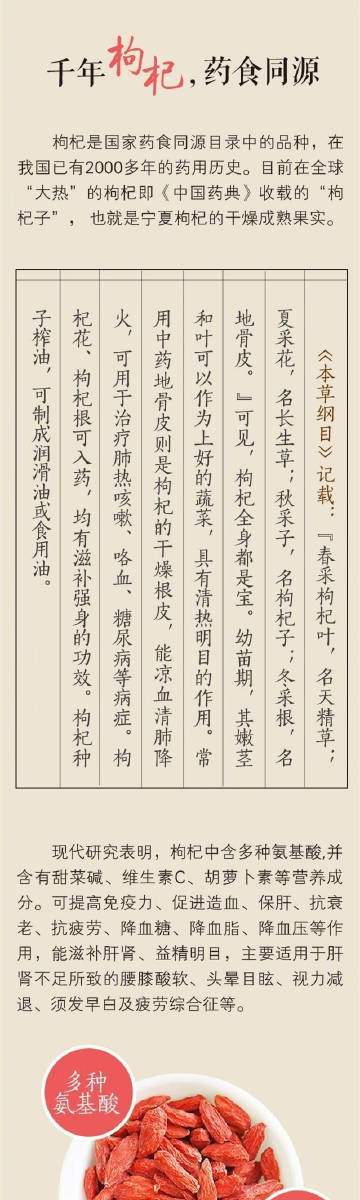 千年枸杞，药食同源
枸杞是国家药食同源目录中的品种，在
我国已有2000多年的药用历史。目前在全球
“大热”的枸杞即《中国药典》收载的“枸
杞子”，也就是宁夏枸杞的干燥成熟果实。
《本草纲目》记载：『春采枸杞叶，名天精草；
夏采花，名长生草；秋采子，名枸杞子；冬采根，名
地骨皮。』可见，枸杞全身都是宝。幼苗期，其嫩茎
和叶可以作为上好的蔬菜，具有清热明目的作用。常
用中药地骨皮则是枸杞的干燥根皮，能凉血清肺降
火，可用于治疗肺热咳嗽、咯血、糖尿病等病症。枸
杞花、枸杞根可入药，均有滋补强身的功效。枸杞种
子榨油，可制成润滑油或食用油。
现代研究表明，枸杞中含多种氨基酸,并
含有甜菜碱、维生素C、胡萝卜素等营养成
分。可提高免疫力、促进造血、保肝、抗衰
老、抗疲劳、降血糖、降血脂、降血压等作
用，能滋补肝肾、益精明目，主要适用于肝
肾不足所致的腰膝酸软、头晕目眩、视力减
退、须发早白及疲劳综合征等。
多种
氨基酸